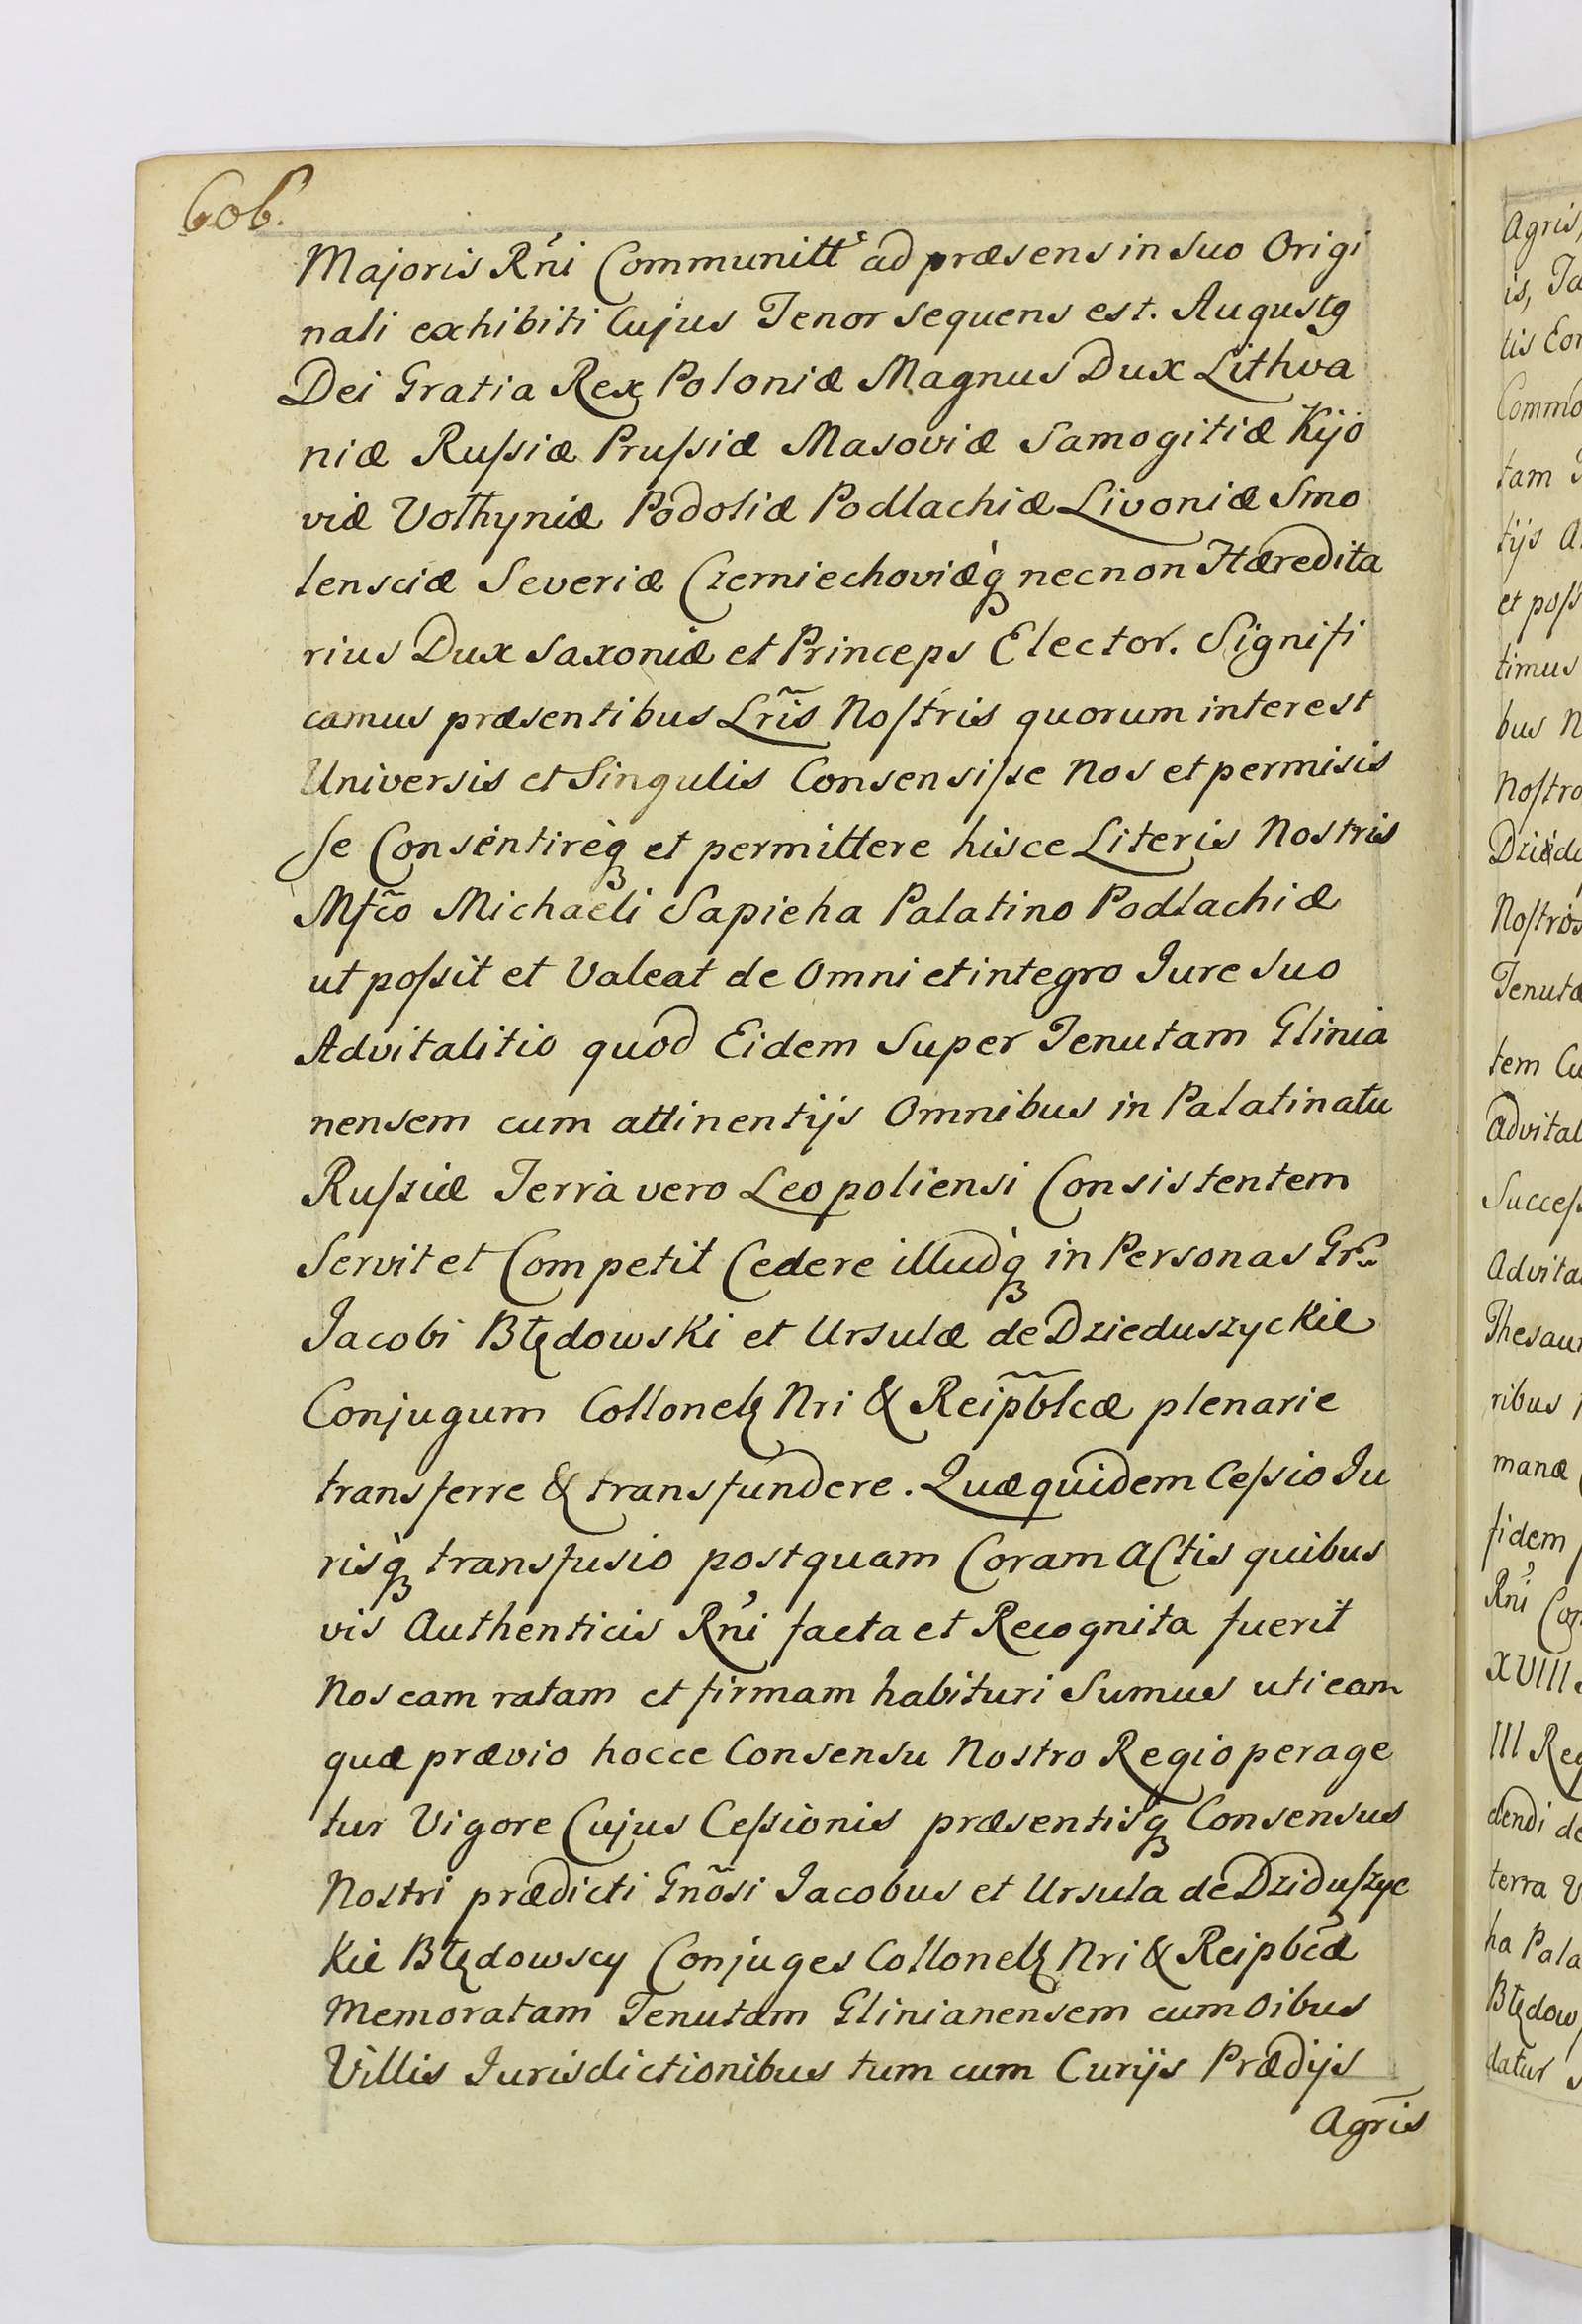 606.
Majoris Rńi Communitt͛ ad præsens in Suo Origi
nali exhibiti Cujus Tenor sequens est. Augustꝯ
Dei Gratia Rex Poloniæ Magnus Dux Lithva
niæ Rußiæ Prußiæ Masoviæ Samogitiæ Kijo
viæ Volhyniæ Podoliæ Podlachiæ Livoniæ Smo
lensciæ Severiæ Czerniechoviæq́ꝫ necnon Hæredita
rius Dux Saxoniæ et Princeps Elector. Signifi
camus præsentibus Lrĩs Nostris quorum interest
Universis et Singulis Consensiſse Nos et permisis
se Consentireq́ꝫ et permittere hisce Literis Nostris
Mfc̃o Michaeli Sapieha Palatino Podlachiæ
ut poſsit et Valeat de Omni et integro Jure Suo
Advitalitio quod Eidem Super Tenutam Glinia
nensem cum attinentijs Omnibus in Palatinatu
Rußiæ Terrà vero Leopoliensi Consistentem
Servit et Competit Cedere illudq́ꝫ in Personas Gr̃
Jacobi Błędowski et Ursulæ de Dzieduszyckie
Conjugum Collonelꝫ Nri & Reip̃b̃lcæ plenarie
transferre & transfundere. Quæquidem Ceſsio Ju
risq́ꝫ transfusio postquam Coram Actis quibus
vis Authenticis Rńi facta et Recognita fuerit
Nos eam ratam et firmam habituri Sumus uti eam
quæ prævio hocce Consensu Nostro Regio perage
tur Vigore Cujus Ceſsionis præsentisqꝫ Consensus
Nostri prædicti Gnõsi Jacobus et Ursula de Dziduſzyc
kie Błędowscy Conjuges Collonelꝫ Nri & Reipbc̃æ
Memoratam Tenutam Glinianensem cum oibus
Villis Jurisdictionibus tum cum Curijs Prædijs
Agris
Agris,
is, Ta
tis
tam
tijs
et poſs
timus
bus N
Nostro
Tenutæ
tem Cu
Advital
Succeſs
Advita
Thesau
ribus
manæ
fidem
Rńi
XVIII
III Reg
dendi de
terra
ha Pala
Błędow
datur